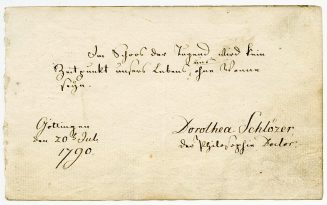 Im Schoos der Tugend wird kein
Zeitpunkt unsers Lebens, ohne Wonne
seyn.
Göttingen
den 20ᵗ Jul.
1790.
Dorothea Schlözer
der Philosophie Doctor.